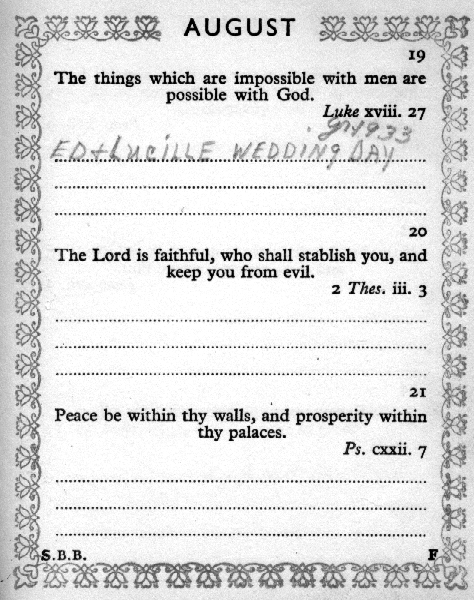 AUGUST
19
The things which are impossible with men are
possible with God.
Luke xviii. 27
1933
ED + LuciLLE WEDDiNg DAY
20
The Lord is faithful, who shall stablish you, and
keep you from evil.
2 Thes. iii. 3
21
Peace be within thy walls, and prosperity within
thy palaces.
Ps. cxxii. 7
S.B.B.
F